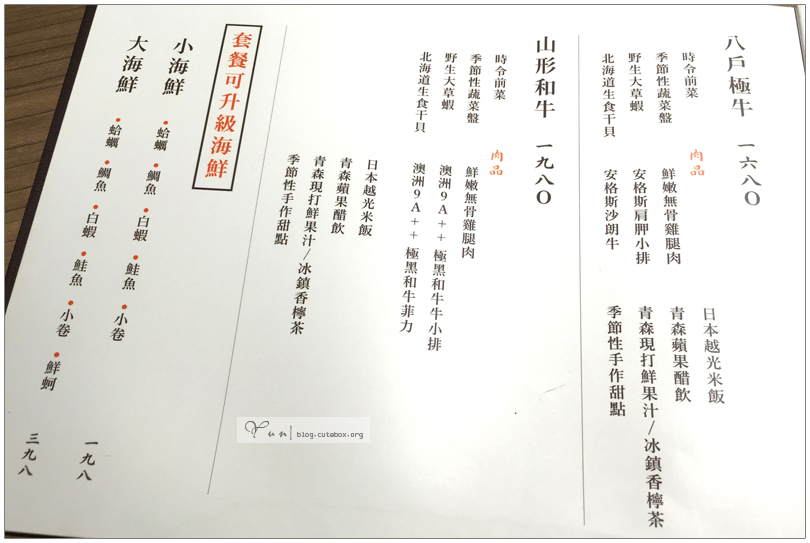 八戶極牛 一六八〇
時令前菜
季節性蔬菜盤
野生大草蝦
北海道生食干貝
肉品
鮮嫩無骨雞腿肉
安格斯肩胛小排
安格斯沙朗牛
日本越光米飯
青森蘋果醋飲
青森現打鮮果汁/冰鎮香檸茶
季節性手作甜點
山形和牛 一九八〇
時令前菜
季節性蔬菜盤
野生大草蝦
北海道生食干貝
肉品
鮮嫩無骨雞腿肉
澳洲9A++極黑和牛牛小排
澳洲9A++極黑和牛菲力
日本越光米飯
青森蘋果醋飲
青森現打鮮果汁/冰鎮香檸茶
季節性手作甜點
套餐可升級海鮮
小海鮮 •蛤蠣 •鯛魚 •白蝦 •鮭魚 •小卷 一九八
大海鮮 •蛤蠣 •鯛魚 •白蝦 •鮭魚 •小卷 •鮮蚵 三九八
Yun blog.cutebox.org